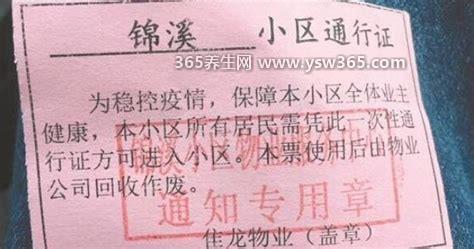 锦溪 小区通行证
365养生网 www.ysw365.com
为稳控疫情，保障本小区全体业主
健康，本小区所有居民需凭此一次性通
行证方可进入小区。本票使用后由物业
公司回收作废。
通知专用章
佳龙物业（盖章）